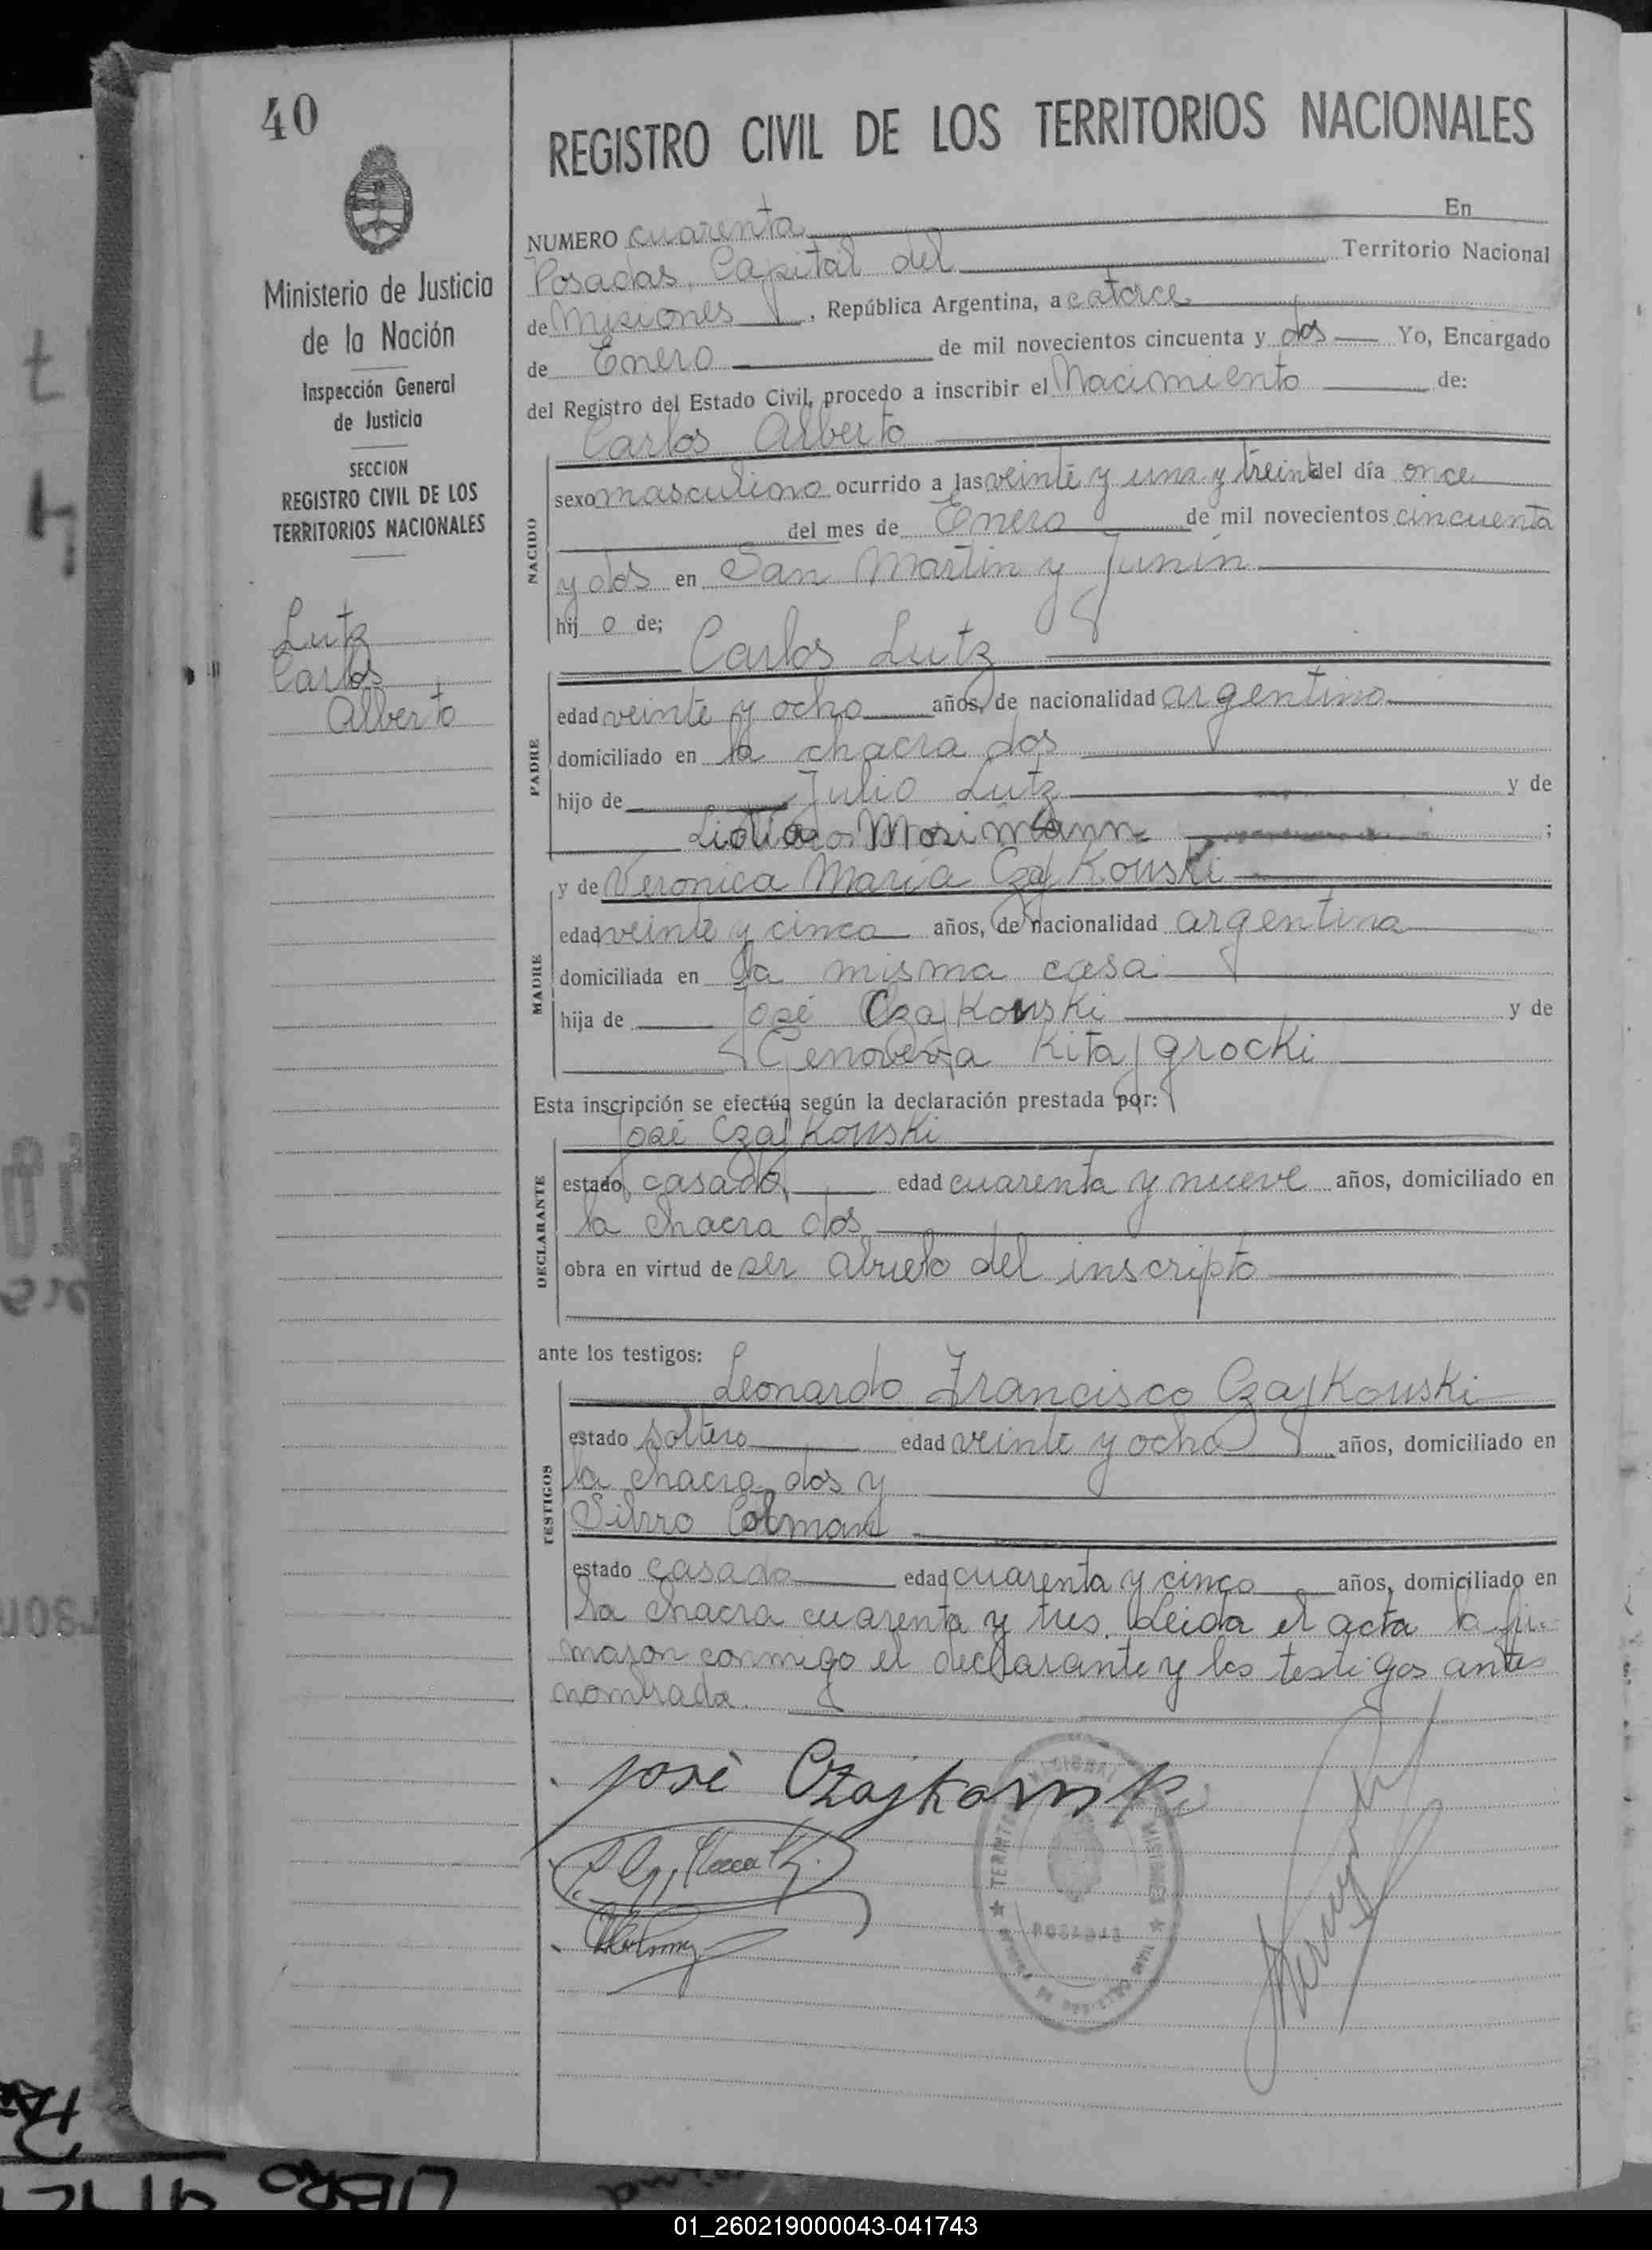 40
REGISTRO CIVIL DE LOS TERRITORIOS NACIONALES
Ministerio de Justicia
de la Nación
Inspección General
de Justicia
SECCION
REGISTRO CIVIL DE LOS
TERRITORIOS NACIONALES
Lutz
Carlos
Alberto
NUMERO cuarenta En
Posadas, Capital del Territorio Nacional
de Misiones, República Argentina, a catorce
de Enero de mil novecientos cincuenta y dos Yo, Encargado
del Registro del Estado Civil, procedo a inscribir el Nacimiento de:
Carlos Alberto
NACIDO
sexo masculino ocurrido a las veinte y una y treinta del día once
del mes de Enero de mil novecientos cincuenta
y dos en San Martin y Junín
hijo de;
Carlos Lutz
PADRE
edad veinte y ocho años, de nacionalidad argentino
domiciliado en la chacra dos
hijo de Julio Lutz y de
Mosimann ;
y de Veronica Maria Czajkouski
MADRE
edad veinte y cinco años, de nacionalidad argentina
domiciliada en la misma casa
hija de José Czajkouski y de
Genoveva Kitajgrocki
Esta inscripción se efectúa según la declaración prestada por:
José Czajkouski
DECLARANTE
estado casado, edad cuarenta y nueve años, domiciliado en
la chacra dos
obra en virtud de ser abuelo del inscripto
ante los testigos:
Leonardo Francisco Czajkouski
TESTIGOS
estado soltero edad veinte y ocho años, domiciliado en
la chacra dos y
Silvio Colman
estado casado edad cuarenta y cinco años, domiciliado en
la chacra cuarenta y tres. Leida el acta la fir-
maron conmigo el declarante y los testigos antes
nombrada.
José Czajkowski
TERRITORIO NACIONAL MISIONES
POSADAS
LIBRO
01_260219000043-041743